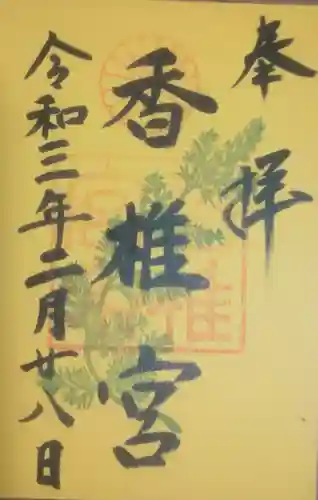 奉拝
香椎宮
令和三年二月廿八日